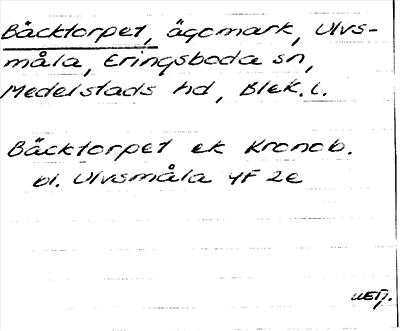 Bäcktorpet, ägomark, Ulvs-
måla, Eringsboda sn,
Medelstads hd, Blek. l.
Bäcktorpet ek Kronob.
bl. Ulvsmåla 4F 2e